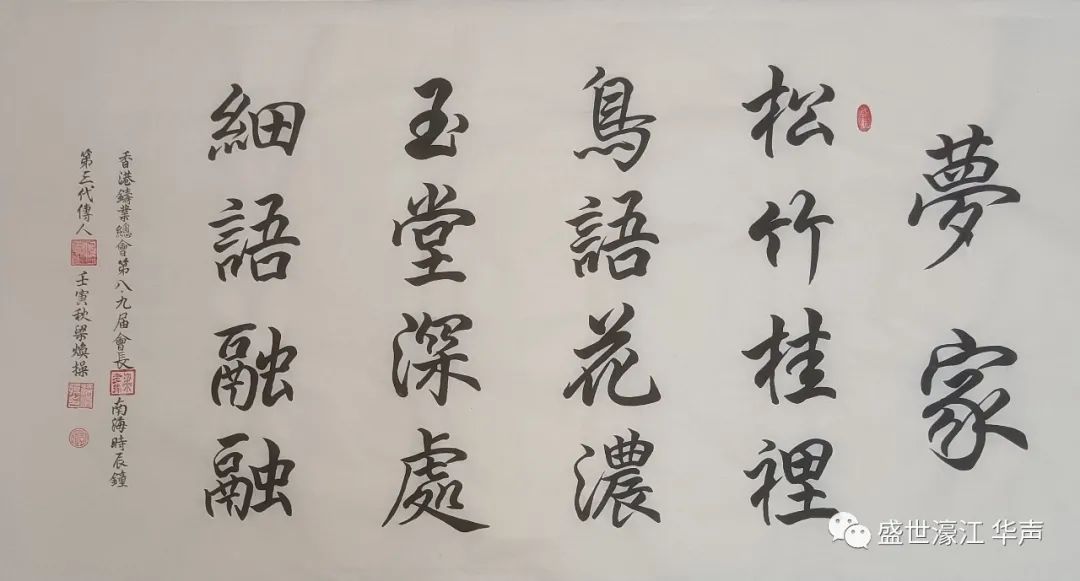 夢家
松竹桂裡
鳥語花濃
玉堂深處
細語融融
香港鑄業總會第八·九届會長 南海時辰鐘
第三代傳人 壬寅秋梁煥操
盛世濠江 华声